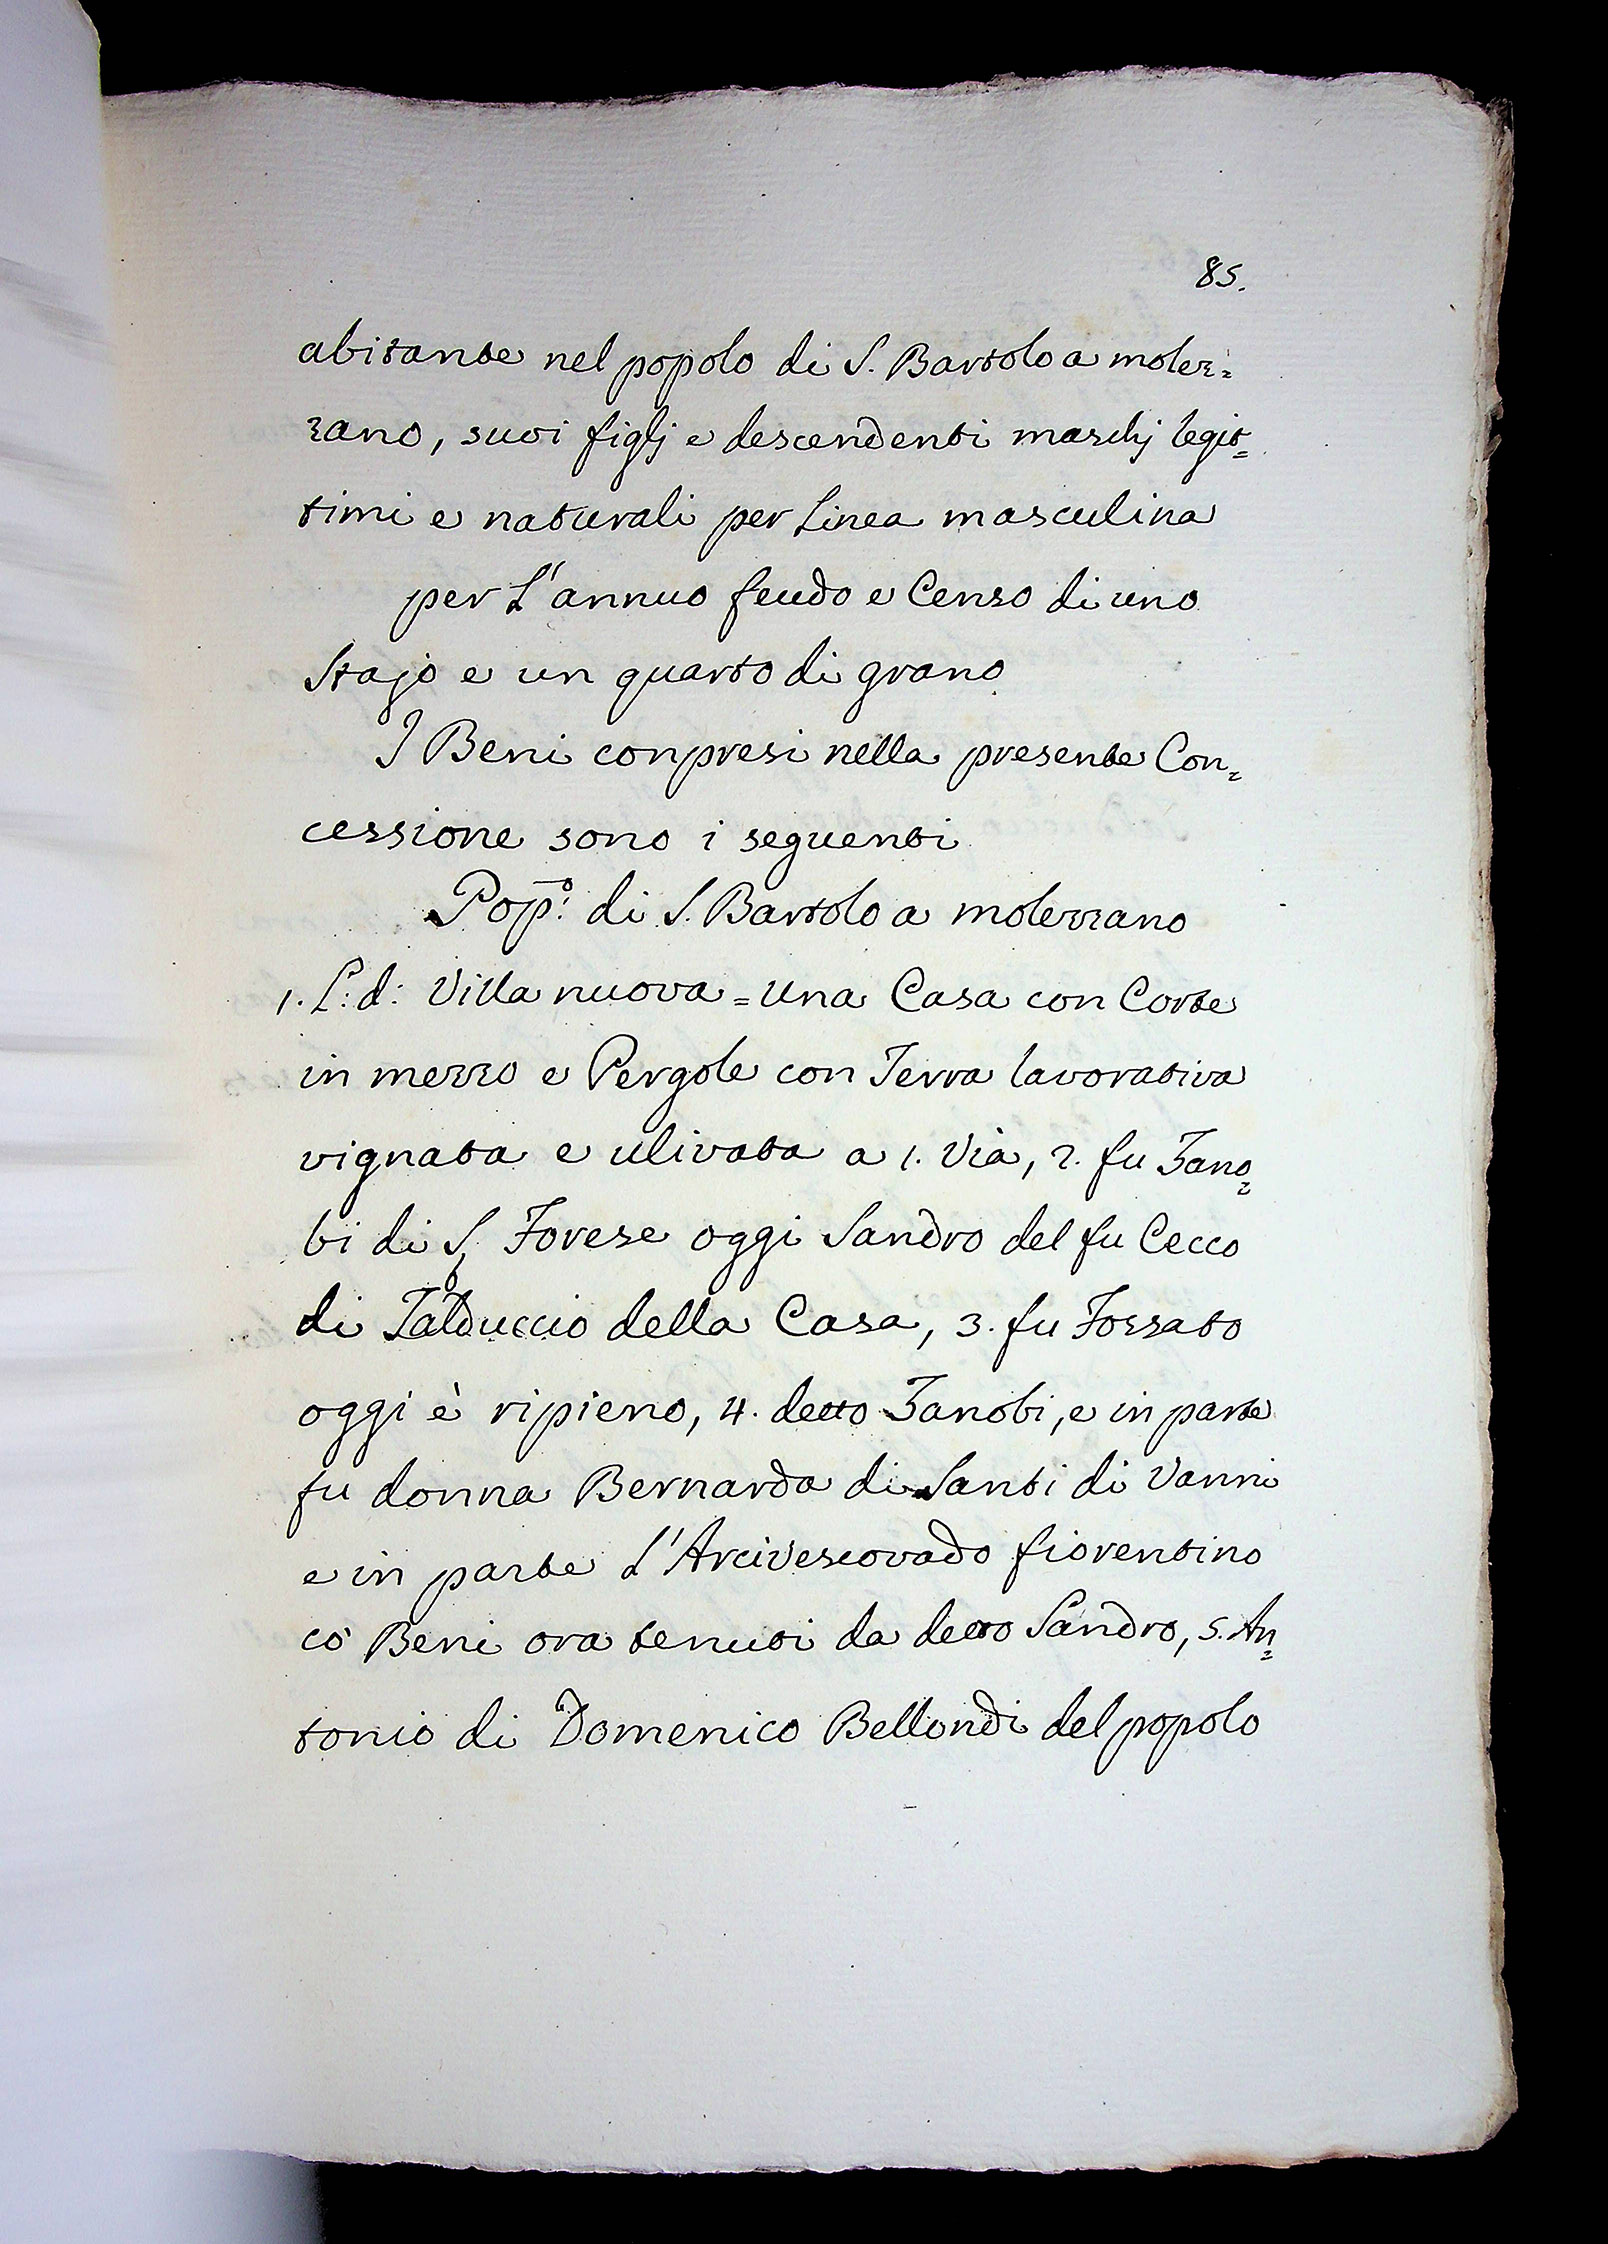 85.
abitante nel popolo di S. Bartolo a molez=
zano, suoi figlj e descendenti maschj legit=
timi e naturali per Linea masculina
per L'annuo feudo e Censo di uno
Stajo e un quarto di grano
I Beni conpresi nella presente Con=
cessione sono i seguenti
Pop.º di S. Bartolo a molezzano
1. L: d: Villa nuova = Una Casa con Corte
in mezzo e Pergole con Terra lavorativa
vignata e ulivata a 1. Via, 2. fu Zano=
bi di S. Forese oggi Sandro del fu Cecco
di Talduccio della Casa, 3. fu Fossato
oggi è ripieno, 4. detto Zanobi, e in parte
fu donna Bernarda di Santi di Vanni
e in parte L'Arcivescovado fiorentino
co Beni ora tenuti da detto Sandro, 5. An=
tonio di Domenico Bellondi del popolo